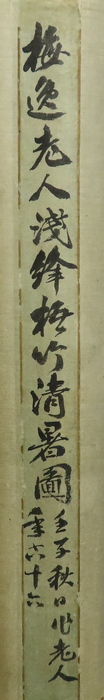 梅逸老人淺絳梧竹清暑圖
壬子秋日作老人
年六十六